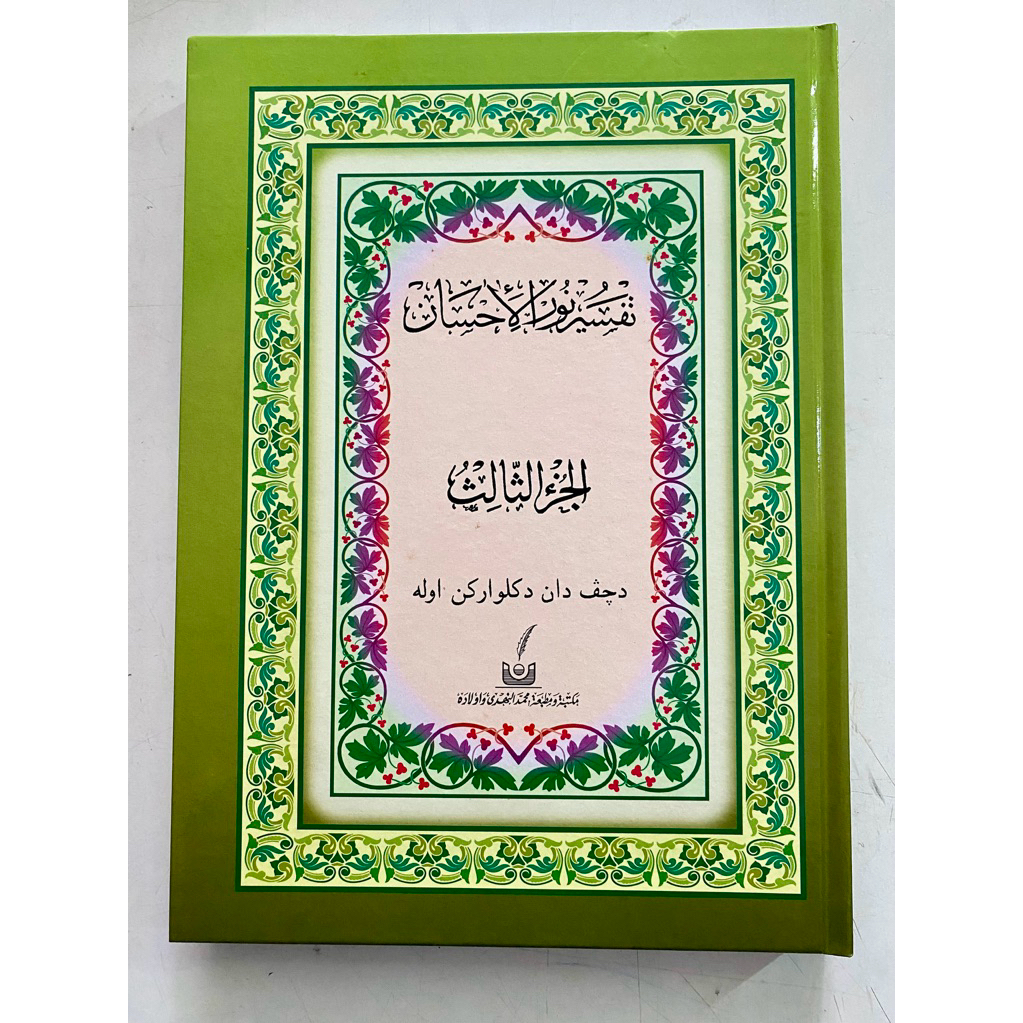 تفسير نُور الإِحسان
الجُزْءُ الثَّالِثُ
دچڤ دان دكلواركن اوله
مكتبة ومطبعة محمد النهدى واولاده